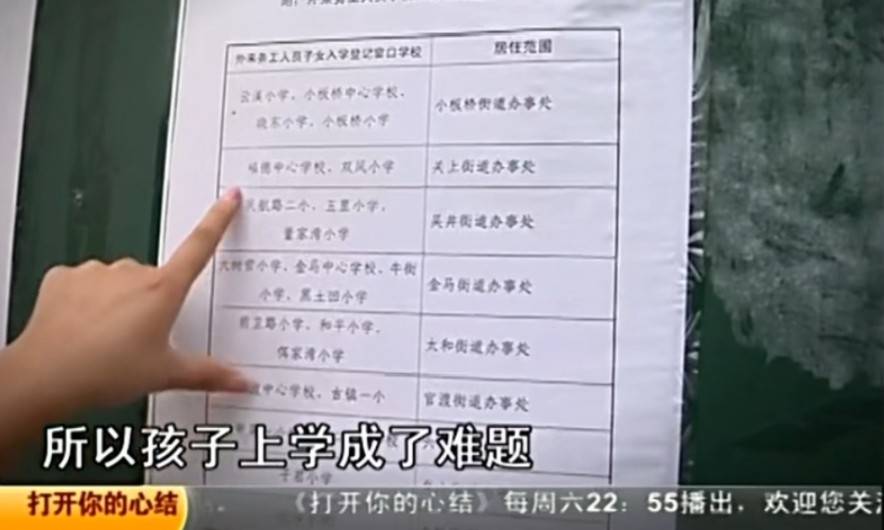 外来务工人员子女入学登记窗口学校
居住范围
云溪小学、小板桥中心学校、
晓东小学、小板桥小学
小板桥街道办事处
福德中心学校、双凤小学
关上街道办事处
民航路二小、五里小学、
董家湾小学
吴井街道办事处
大树营小学、金马中心学校、牛街
小学、黑土凹小学
金马街道办事处
前卫路小学、和平小学、
佴家湾小学
太和街道办事处
中心学校、古镇一小
官渡街道办事处
所以孩子上学成了难题
打开你的心结
《打开你的心结》每周六22：55播出，欢迎您关